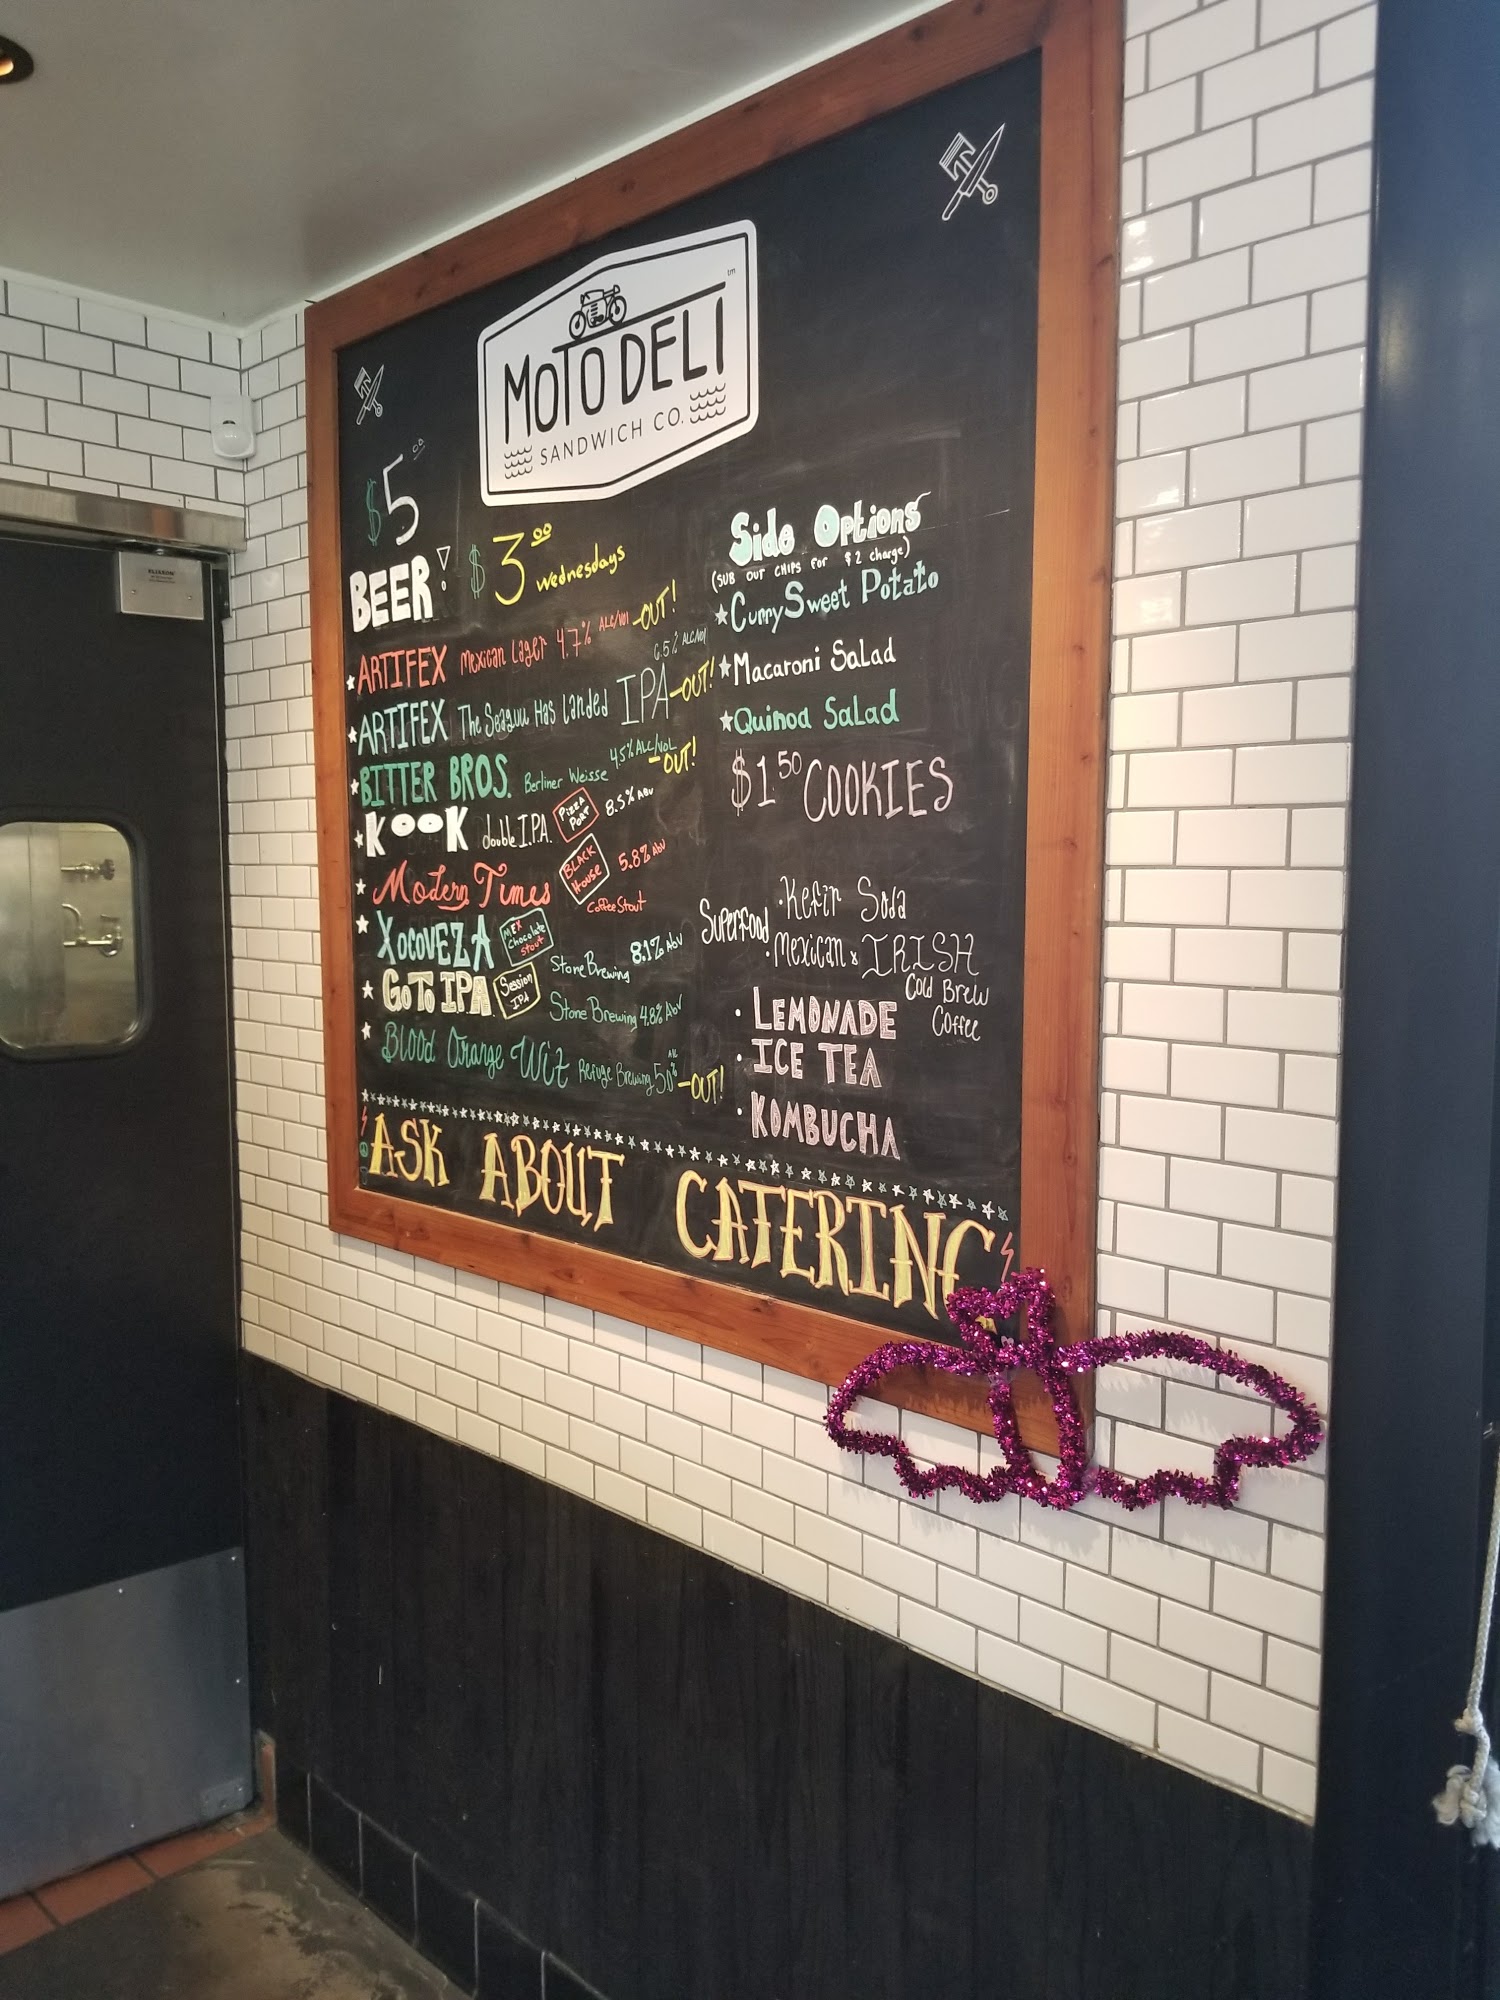 MOTO DELI
tm
SANDWICH CO.
$5.00
BEER!
$3.00 Wednesdays
ARTIFEX Mexican Lager 4.7% ALC/VOl -OUT!
ARTIFEX The Seaguu Has Landed IPA 6.5% ALC/VOl -OUT!
BITTER BROS. Berliner Weisse 4.5% ALC/VOL -OUT!
KOOK double I.P.A. PIZZA PORT 8.5% ABV
Modern Times BLACK House 5.8% ABV
Coffee Stout
XOCOVEZA MEX Chocolate stout Stone Brewing 8.1% ABV
GoTo IPA Session IPA Stone Brewing 4.8% ABV
Blood Orange Wit Refuge Brewing 5.0% -OUT!
Side Options
(SUB OUT CHIPS FOR $2 charge)
Curry Sweet Potato
Macaroni Salad
Quinoa Salad
$1.50 COOKIES
Superfood
Kefir Soda
Mexican & IRISH
Cold Brew
Coffee
LEMONADE
ICE TEA
KOMBUCHA
ASK ABOUT CATERING
ELIASON